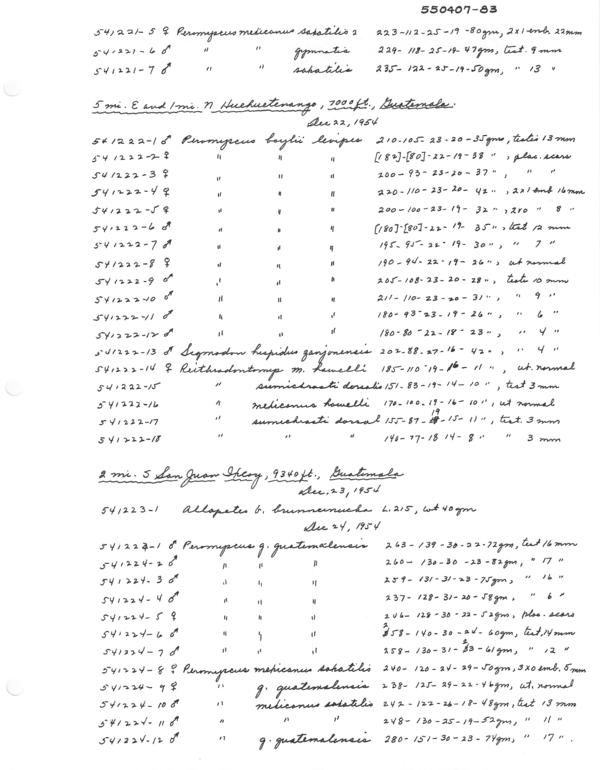 550407-83
541221-5 ♀ Peromyscus mexicanus saxatilis 2 223-112-25-19-80gm, 2x1 emb. 22mm
541221-6 ♂ " " gymnotis 229-118-25-19-47gm, test. 9mm
541221-7 ♂ " " saxatilis 235-122-25-19-50gm, " 13 "
5 mi. E and 1 mi. N Huehuetenango, 7000 ft., Guatemala.
Dec 22, 1954
541222-1 ♂ Peromyscus boylii levipes 210-105-23-20-35gms, testis 13 mm
541222-2 ♀ " " " [182]-[80]-22-19-38 ", plac. scars
541222-3 ♀ " " " 200-93-23-20-37 ", " "
541222-4 ♀ " " " 220-110-23-20-42 ", 2x1 emb 16mm
541222-5 ♀ " " " 200-100-23-19-32 ", 2x0 " 8 "
541222-6 ♂ " " " [180]-[80]-22-19-35 ", test 12 mm
541222-7 ♂ " " " 195-95-22-19-30 ", " 7 "
541222-8 ♀ " " " 190-94-22-19-26 ", ut normal
541222-9 ♂ " " " 205-108-23-20-28 ", testis 10 mm
541222-10 ♂ " " " 211-110-23-20-31 ", " 9 "
541222-11 ♂ " " " 180-93-23-19-26 ", " 6 "
541222-12 ♂ " " " 180-80-22-18-23 ", " 4 "
541222-13 ♂ Sigmodon hispidus zanjonensis 202-88-27-16-42 ", " 4 "
541222-14 ♀ Reithrodontomys m. howelli 185-110-19-16-11 ", ut. normal
541222-15 " sumichrasti dorsalis 151-83-19-14-10 ", test 3mm
541222-16 " mexicanus howelli 170-100-19-16-10 ", ut normal
541222-17 " sumichrasti dorsal 155-87-19-15-11 ", test. 3 mm
541222-18 " " " 140-77-18 14-8 " " 3 mm
2 mi. S San Juan Ixcoy, 9340 ft., Guatemala
Dec. 23, 1954
541223-1 Atlapetes b. brunneinucha L. 215, wt 40gm
Dec 24, 1954
541224-1 ♂ Peromyscus g. guatemalensis 263-139-30-22-72gm, test 16 mm
541224-2 ♂ " " " 260-130-30-23-82gm, " 17 "
541224-3 ♂ " " " 259-131-31-23-75gm, " 16 "
541224-4 ♂ " " " 237-128-31-20-58gm, " 6 "
541224-5 ♀ " " " 246-128-30-22-52gm, plac. scars
541224-6 ♂ " " " 258-140-30-24-60gm, test, 14mm
541224-7 ♂ " " " 258-130-31-23-61gm, " 12 "
541224-8 ♀ Peromyscus mexicanus saxatilis 240-120-24-29-50gm, 3x0 emb. 5mm
541224-9 ♀ " g. guatemalensis 238-125-29-22-46gm, ut. normal
541224-10 ♂ " mexicanus saxatilis 242-122-26-18-48gm, test 13 mm
541224-11 ♂ " " " 248-130-25-19-52gm, " 11 "
541224-12 ♂ " g. guatemalensis 280-151-30-23-74gm, " 17 ".